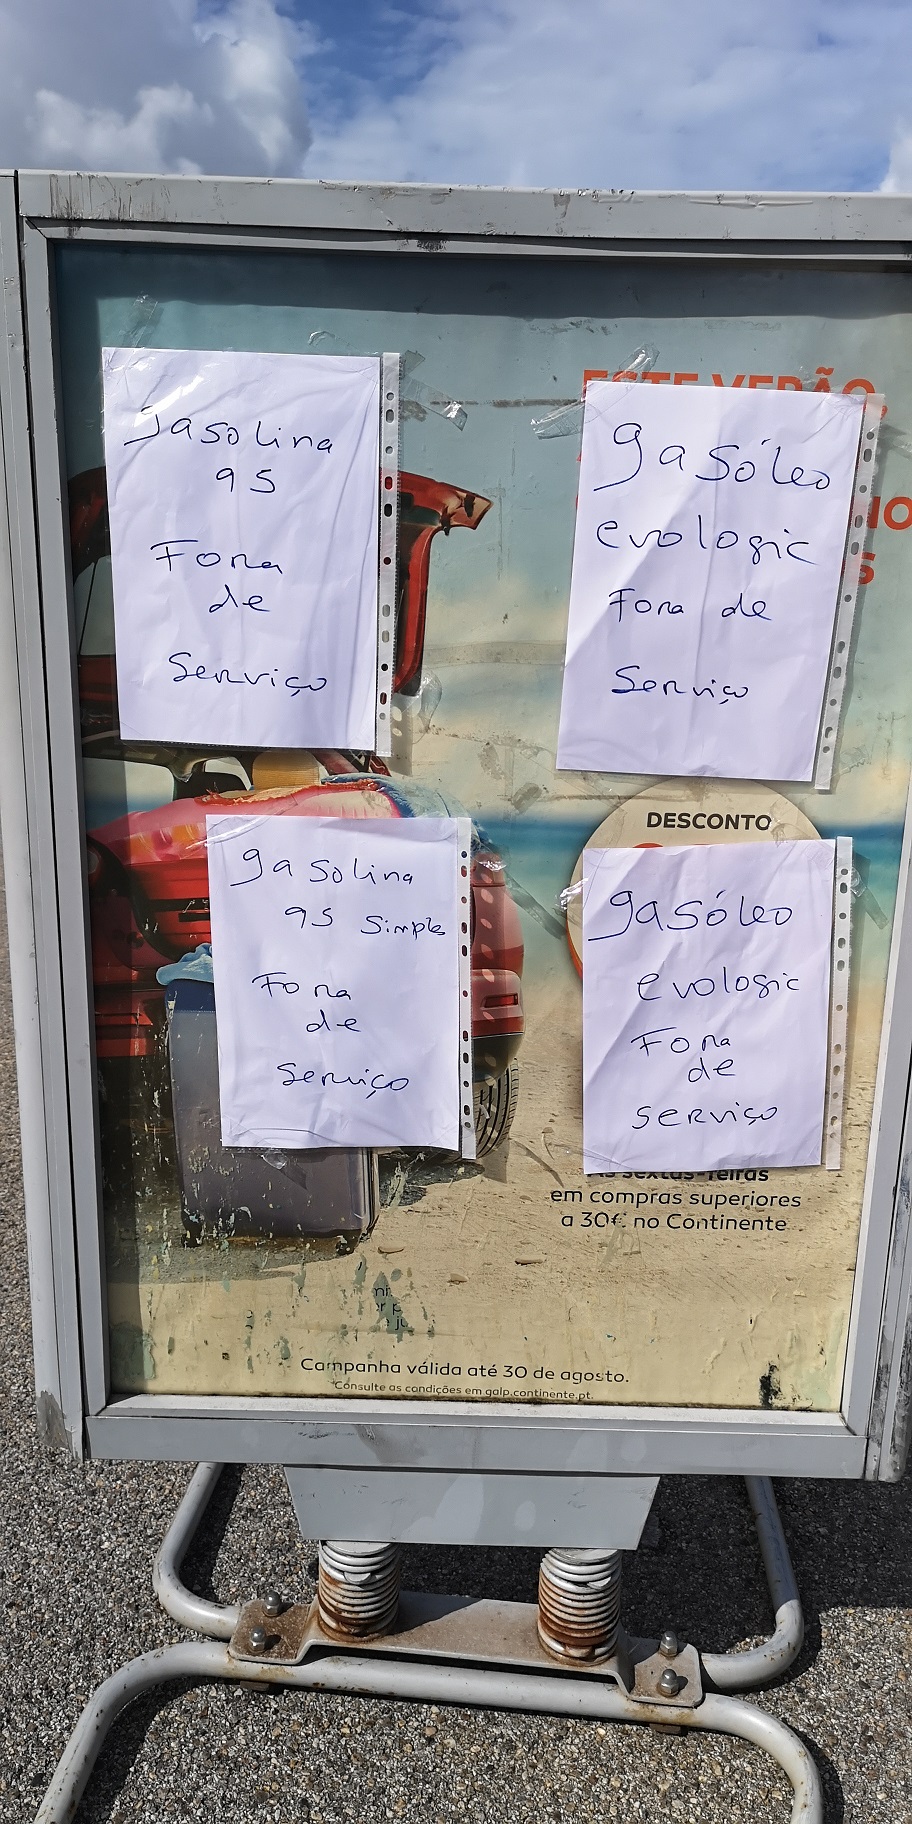 gasolina
95
Fora
de
Serviço
ESTE VERÃO,
gasóleo
evologic
Fora de
Serviço
gasolina
95 Simples
Fora
de
Serviço
DESCONTO
gasóleo
evologic
Fora
de
serviço
às sextas-feiras
em compras superiores
a 30€ no Continente
Campanha válida até 30 de agosto.
Consulte as condições em galp.continente.pt.